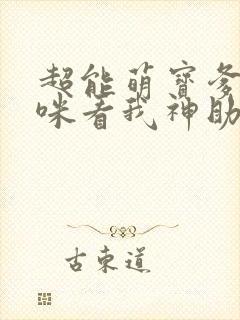 超能萌寶爹
咪看我神助
古東道